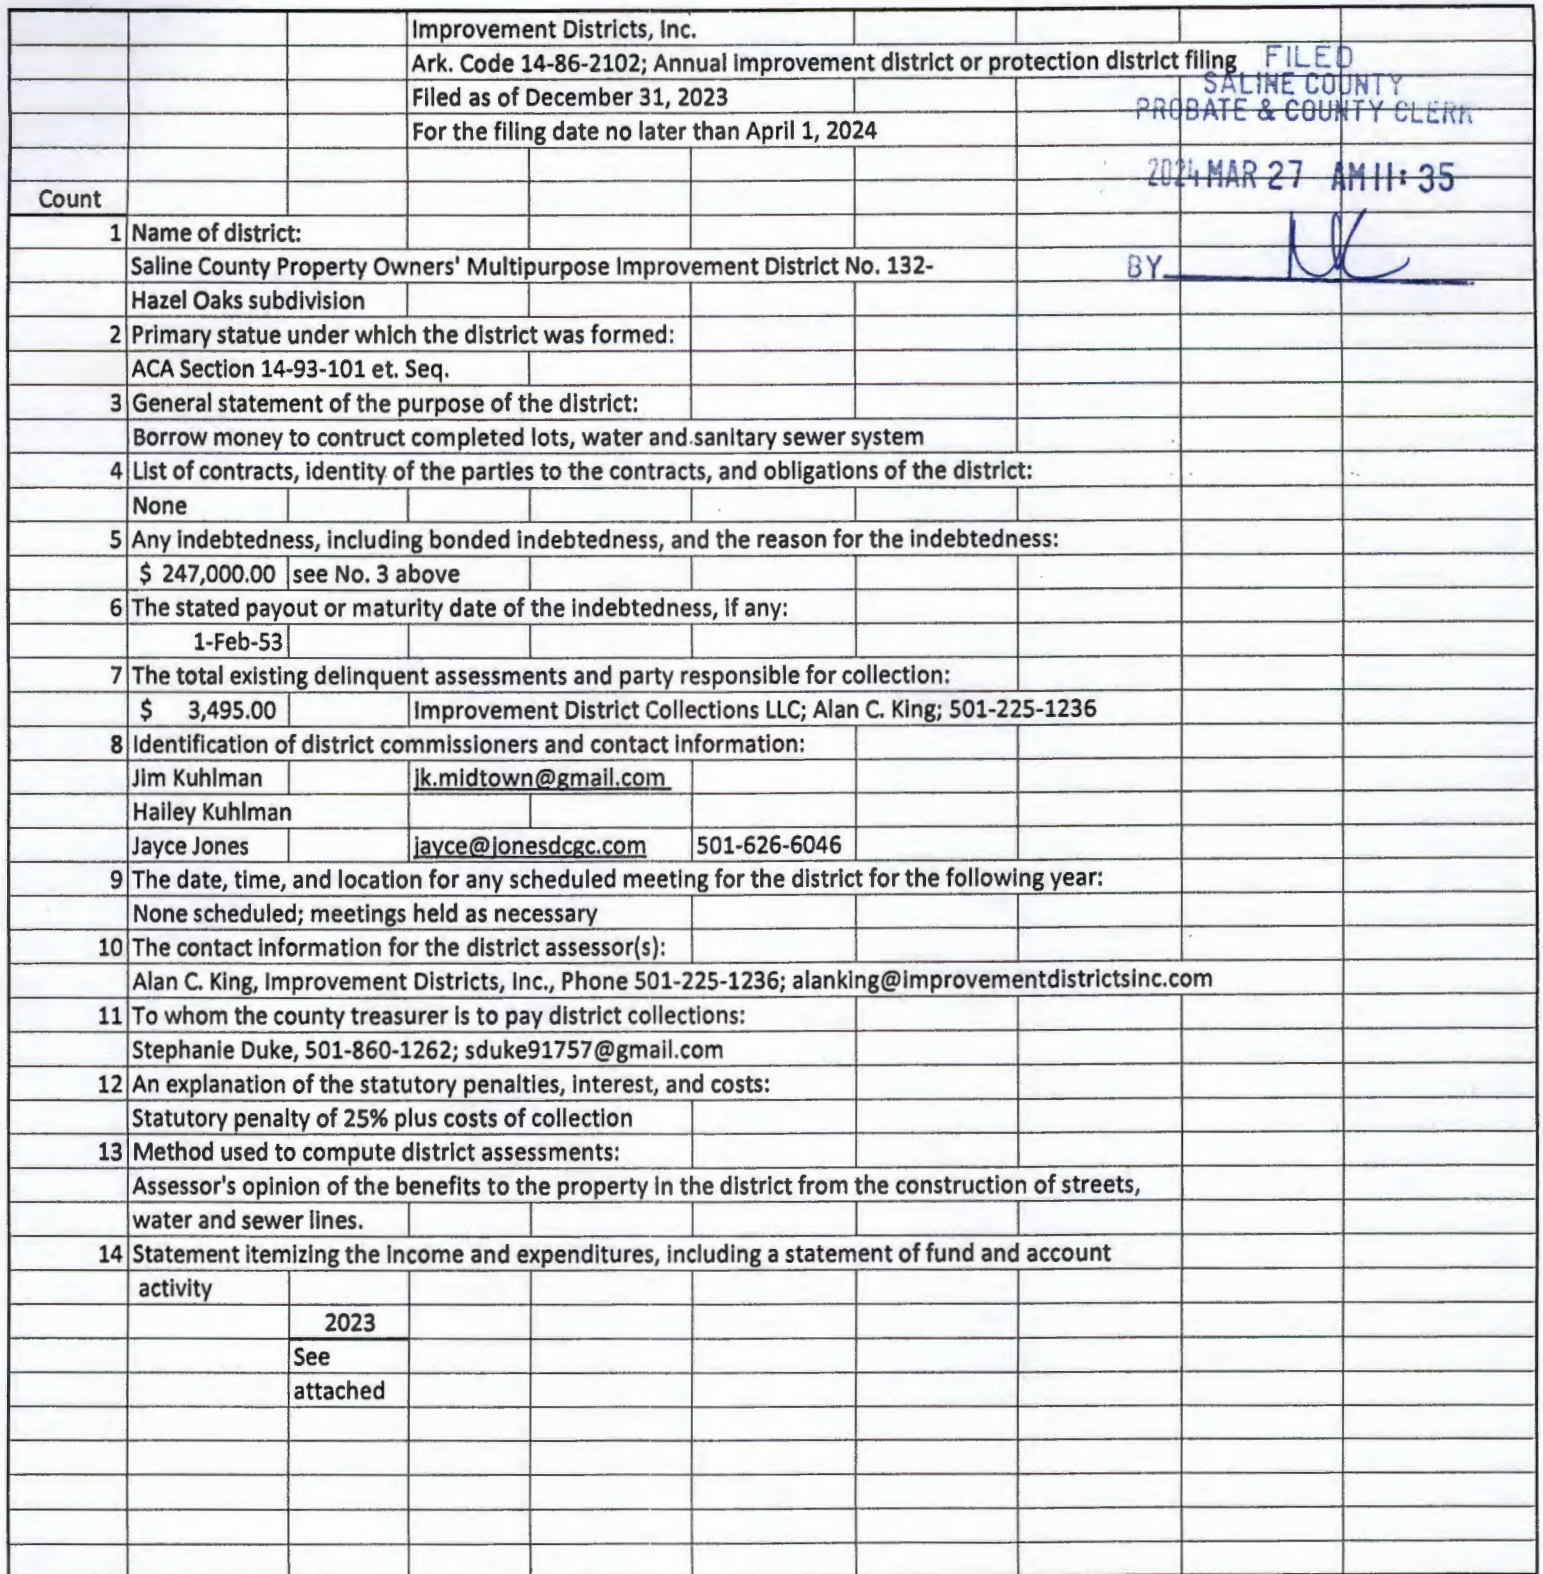 Improvement Districts, Inc.
Ark. Code 14-86-2102; Annual improvement district or protection district filing
Filed as of December 31, 2023
For the filing date no later than April 1, 2024
FILED
SALINE COUNTY
PROBATE & COUNTY CLERK
2024 MAR 27 AM 11:35
BY
Count
1 Name of district:
Saline County Property Owners' Multipurpose Improvement District No. 132-
Hazel Oaks subdivision
2 Primary statue under which the district was formed:
ACA Section 14-93-101 et. Seq.
3 General statement of the purpose of the district:
Borrow money to contruct completed lots, water and sanitary sewer system
4 List of contracts, identity of the parties to the contracts, and obligations of the district:
None
5 Any indebtedness, including bonded indebtedness, and the reason for the indebtedness:
$ 247,000.00 see No. 3 above
6 The stated payout or maturity date of the indebtedness, if any:
1-Feb-53
7 The total existing delinquent assessments and party responsible for collection:
$ 3,495.00 Improvement District Collections LLC; Alan C. King; 501-225-1236
8 Identification of district commissioners and contact information:
Jim Kuhlman jk.midtown@gmail.com
Hailey Kuhlman
Jayce Jones jayce@jonesdcgc.com 501-626-6046
9 The date, time, and location for any scheduled meeting for the district for the following year:
None scheduled; meetings held as necessary
10 The contact information for the district assessor(s):
Alan C. King, Improvement Districts, Inc., Phone 501-225-1236; alanking@improvementdistrictsinc.com
11 To whom the county treasurer is to pay district collections:
Stephanie Duke, 501-860-1262; sduke91757@gmail.com
12 An explanation of the statutory penalties, interest, and costs:
Statutory penalty of 25% plus costs of collection
13 Method used to compute district assessments:
Assessor's opinion of the benefits to the property in the district from the construction of streets,
water and sewer lines.
14 Statement itemizing the income and expenditures, including a statement of fund and account
activity
2023
See
attached